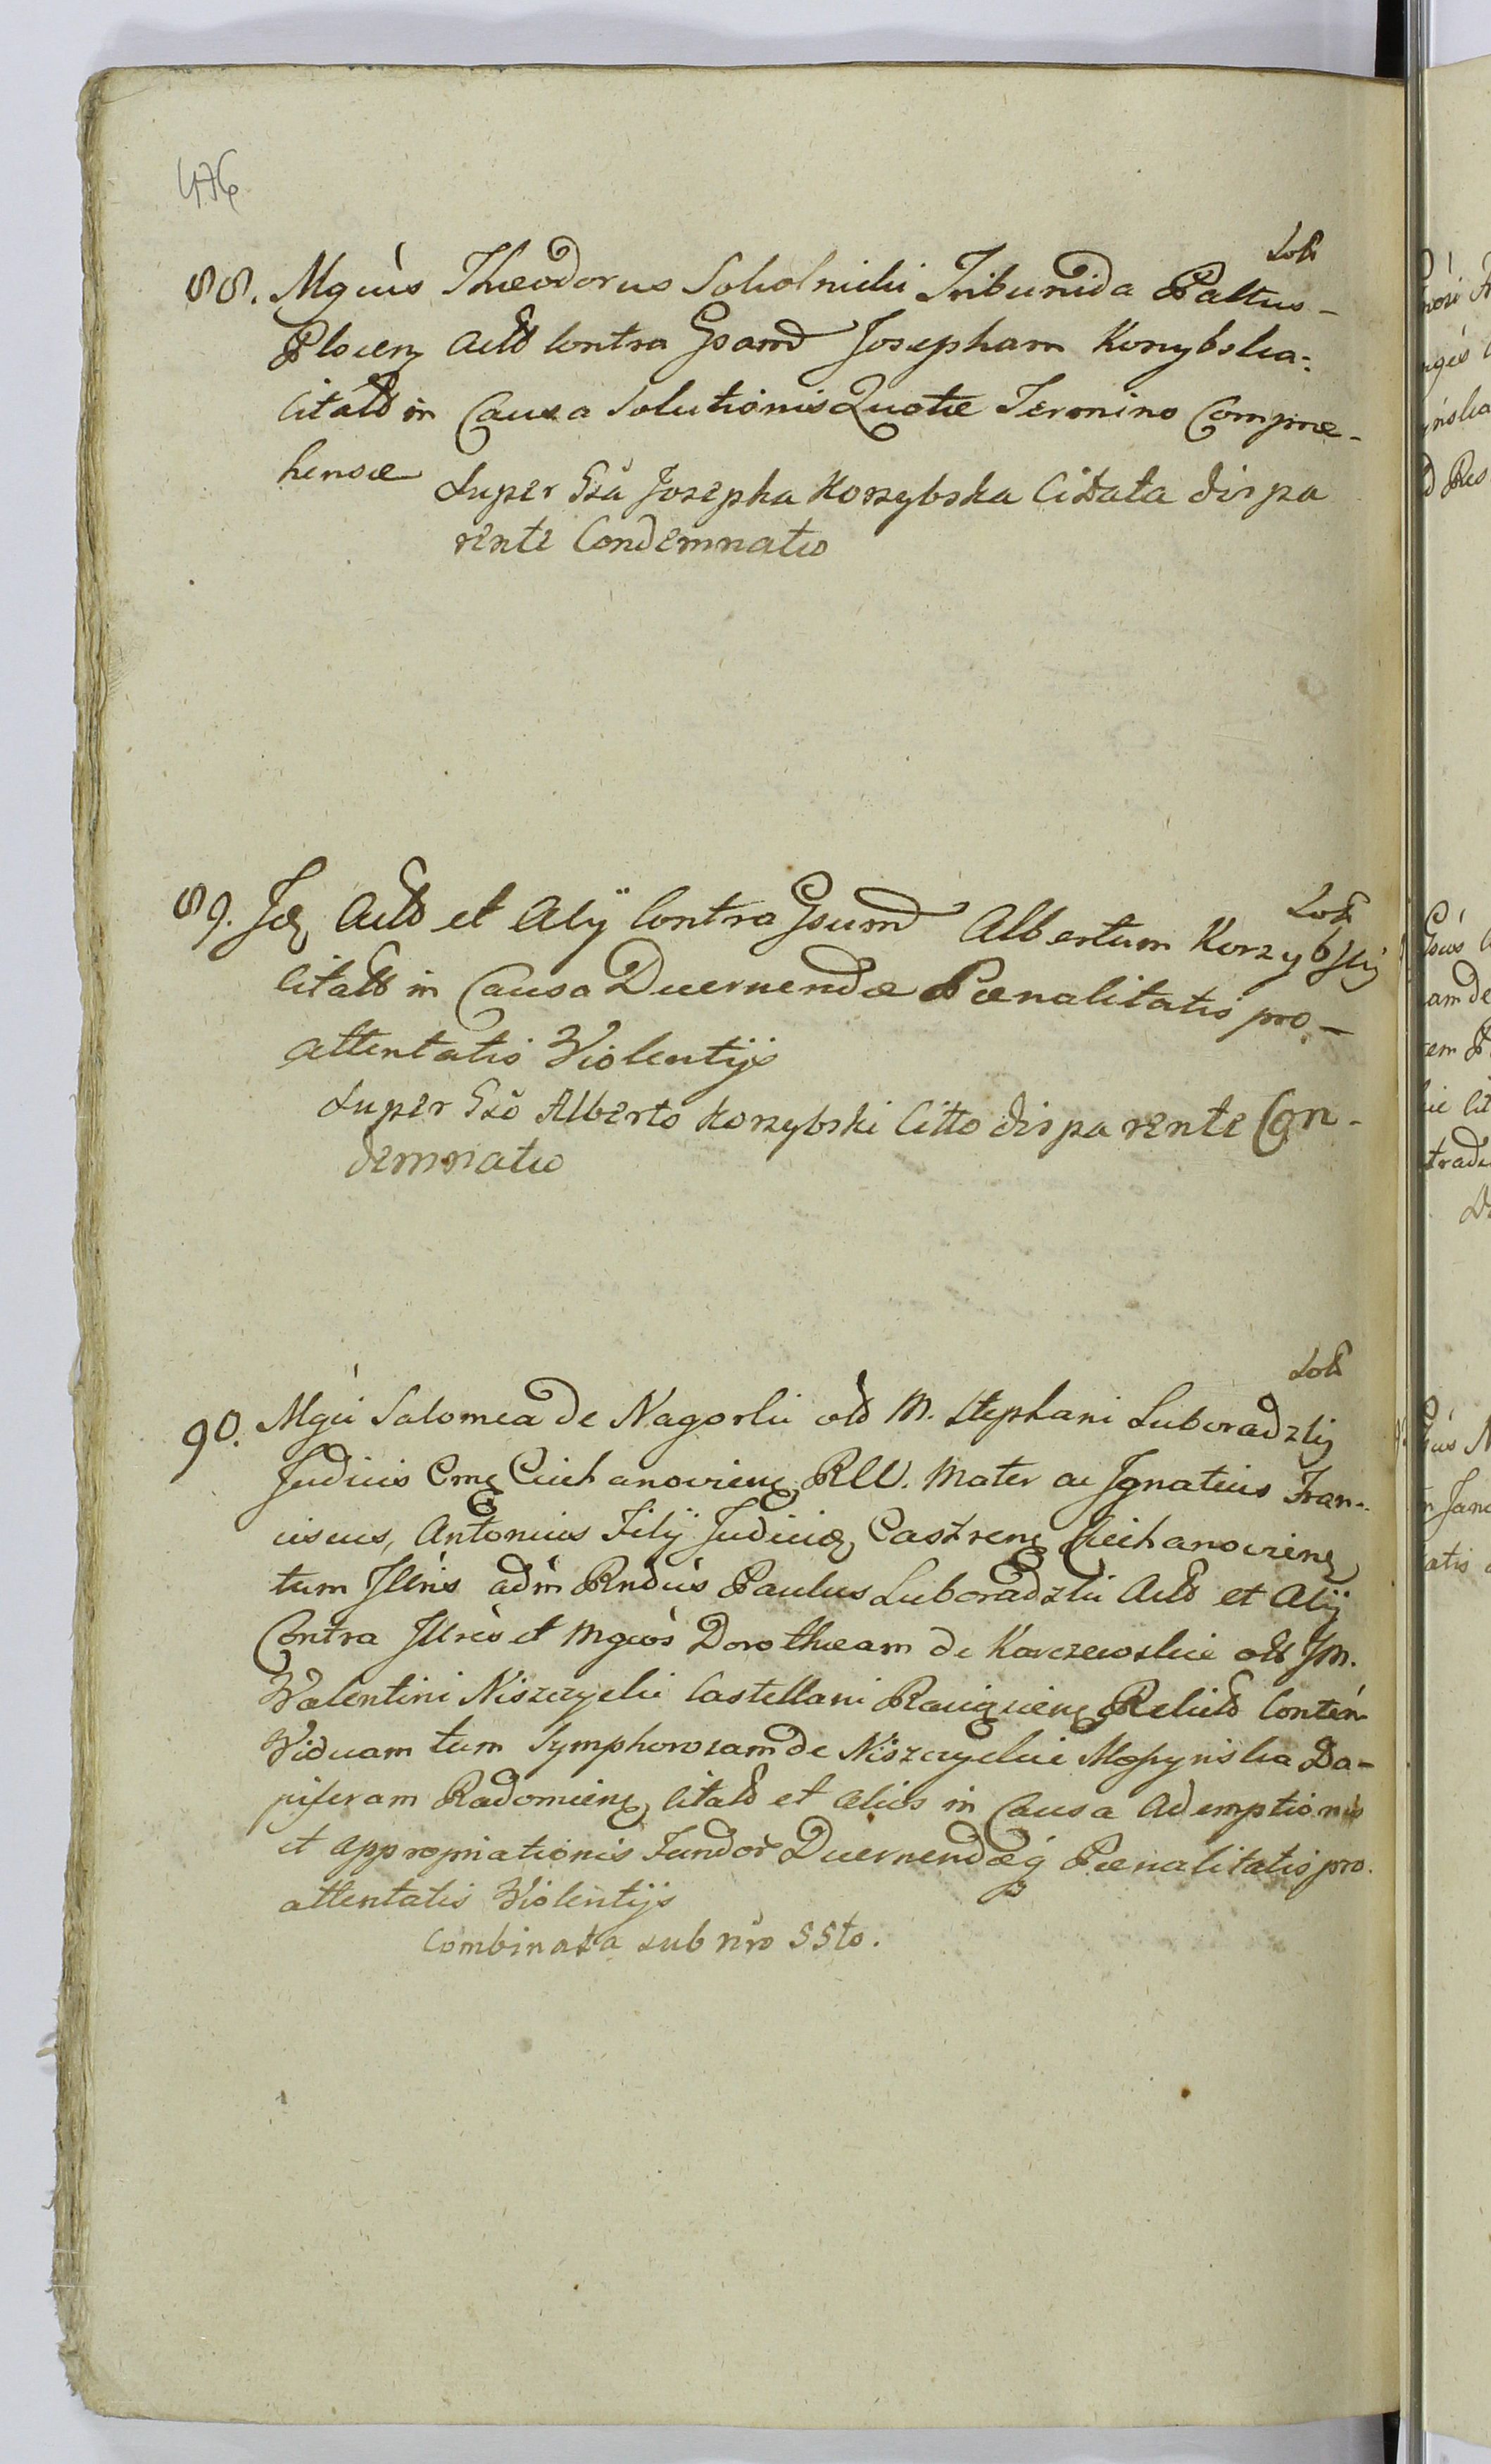 476
Sol
88. Mgcus Theodorus Sokolnicki Tribunida Paltus-
Plocen Actt Contra Gsamd Josepham Korzybska:
Citatt in Causa Solutionis Quotæ Termino Compræ-
hensæ
Super Gsa Josepha Korzybska Citata dispa
rente Condemnatio
Sol
89. Id Actt et Alÿ Contra Gsumd Albertum Korzybski
Citatt in Causa Decernendæ Pœnalitatis pro-
attentatis Violentijs
Super Gso Alberto Korzybski Citto disparente Con-
demnatio
Sol
90. Mgci Salomea de Nagorki old M. Stephani Luboradzkij
Judicis Cme Ciechanovien RVV. Mater ac Ignatius Fran-
ciscus, Antonius Filÿ Judicid Castren Ciechanovien
tum Jllris adm Rndus Paulus Luboradzki Actt et Alÿ
Contra Jllres et Mgcos Dorotheam de Karczewskie old JM.
Walentini Niszczycki Castellani Raciązien Relictt Conten
Viduam tum Symphorosam de Niszczyckie Mossynska Da-
piferam Radomien Citatt et alios in Causa Ademptionis
et appropriationis Fundor Decernendæq Pœnalitatis pro.
attentatis Violentijs
Combinata sub nro 55to.